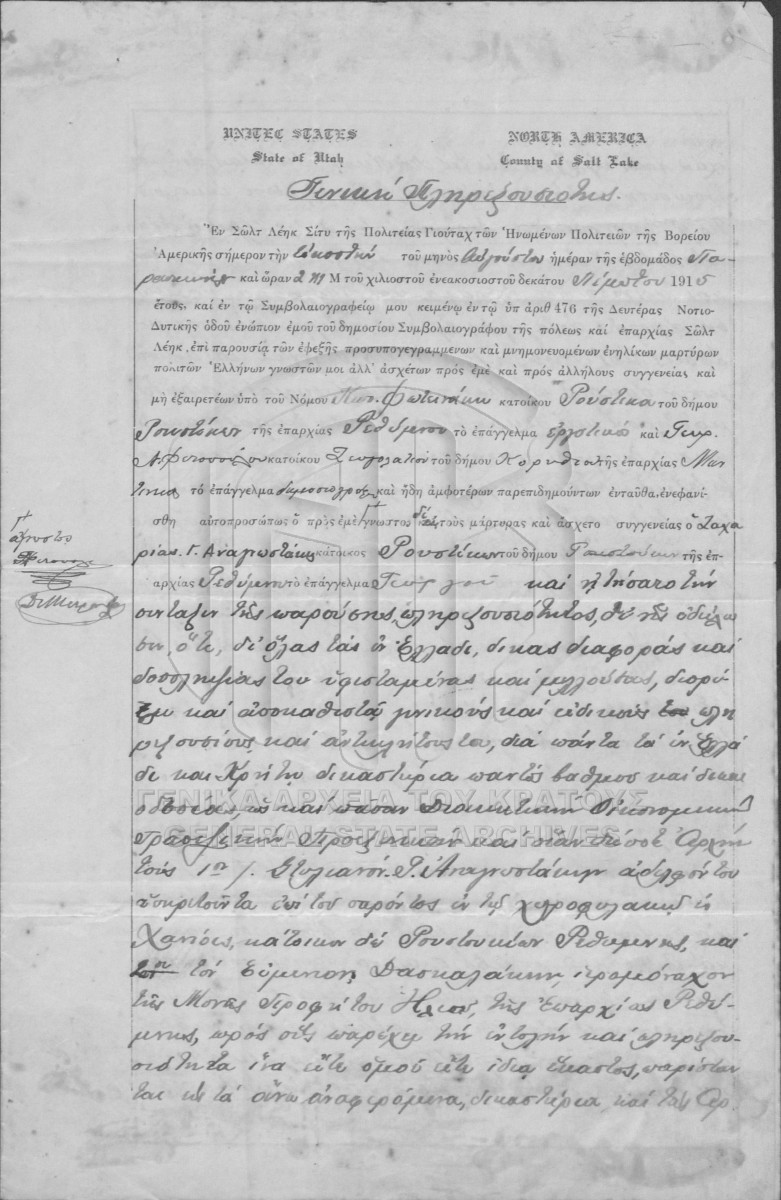 UNITEC STATES NORTH AMERICA
State of Utah County of Salt Lake
Γενική Πληρεξουσιότης.
Ἐν Σὼλτ Λέηκ Σίτυ τῆς Πολιτείας Γιούταχ τῶν Ἡνωμένων Πολιτειῶν τῆς Βορείου
Ἀμερικῆς σήμερον τὴν εἰκοστὴν τοῦ μηνὸς Αὐγούστου ἡμέραν τῆς ἑβδομάδος Πα-
ρασκευὴν καὶ ὥραν 2 Μ τοῦ χιλιοστοῦ ἐνεακοσιοστοῦ δεκάτου Πέμπτου 1915
ἔτους, καὶ ἐν τῷ Συμβολαιογραφείῳ μου κειμένῳ ἐν τῷ ὑπ ἀριθ 476 τῆς Δευτέρας Νοτιο-
Δυτικῆς ὁδοῦ ἐνώπιον ἐμοῦ τοῦ δημοσίου Συμβολαιογράφου τῆς πόλεως καὶ ἐπαρχίας Σὼλτ
Λέηκ, ἐπὶ παρουσίᾳ τῶν ἐφεξῆς προσυπογεγραμμενων καὶ μνημονευομένων ἐνηλίκων μαρτύρων
πολιτῶν Ἑλλήνων γνωστῶν μοι ἀλλ' ἀσχέτων πρὸς ἐμὲ καὶ πρὸς ἀλλήλους συγγενείας καὶ
μὴ ἐξαιρετέων ὑπὸ τοῦ Νόμου Φωτεινάκη κατοίκου Ρούστικα τοῦ δήμου
Ρουστίκων τῆς ἐπαρχίας Ρεθύμνου τὸ ἐπάγγελμα ἐργατικὸ καὶ Γεωρ.
κατοίκου Ζευγολατιοῦ τοῦ δήμου Κορυθίου τῆς ἐπαρχίας Μαν
τινείας τὸ ἐπάγγελμα δημοσιογράφου καὶ ἤδη ἀμφοτέρων παρεπιδημούντων ἐνταῦθα, ἐνεφανί-
σθη αὐτοπροσώπως ὁ πρὸς ἐμὲ γνωστὸς καὶ τοὺς μάρτυρας καὶ ἄσχετο συγγενείας ὁ Ζαχα
ρίας. Γ. Αναγωστάκης κάτοικος Ρουστίκων τοῦ δήμου Ρουστίκων τῆς ἐπ-
αρχίας Ρεθύμνου τὸ ἐπάγγελμα Γεωργοῦ καὶ ᾐτήσατο τὴν
σύνταξιν τῆς παρούσης πληρεξουσιότητος, δι' ἧς ἐδήλω
σεν, ὅτι, δι' ὅλας τὰς ἐν Ἑλλάδι, δίκας διαφορὰς καὶ
δοσοληψίας του ὑφισταμένας καὶ μελλούσας, διορί-
ζει καὶ ἀποκαθιστᾷ γενικούς καὶ εἰδικούς πλη
ρεξουσίους καὶ ἀντικλήτους του, διὰ πάντα τὰ ἐν Ἑλλά
δι καὶ Κρήτῃ δικαστήρια παντὸς βαθμοῦ καὶ δικαι
οδοσίας, ὡς καὶ πᾶσαν Διοικητικὴν Οἰκονομικὴν
Τραπεζικὴν Προξενικὴν καὶ οἱανδήποτε Ἀρχὴν
τοὺς 1ον/. Στυλιανόν. Γ. Ἀναγνωστάκην ἀδελφόν του
ὑπηρετοῦντα ἐπὶ τοῦ παρόντος ἐν τῇ χωροφυλακῇ ἐν
Χανίοις, κάτοικον δὲ Ρουστίκων Ρεθύμνης, καὶ
τὸν Εὐμένιον Δασκαλάκην, ἱερομόναχον
τῆς Μονῆς Προφήτου Ἠλιοῦ, τῆς Ἐπαρχίας Ρεθύ-
μνης, πρὸς οὓς παρέχει τὴν ἐντολὴν καὶ πληρεξου-
σιότητα ἵνα εἴτε ὁμοῦ εἴτε ἰδίᾳ ἕκαστος, παρίσταν
ται εἰς τὰ ἄνω ἀναφερόμενα, δικαστήρια καὶ τὰς Ἀρ.
ΓΕΝΙΚΑ ΑΡΧΕΙΑ ΤΟΥ ΚΡΑΤΟΥΣ
GENERAL STATE ARCHIVES